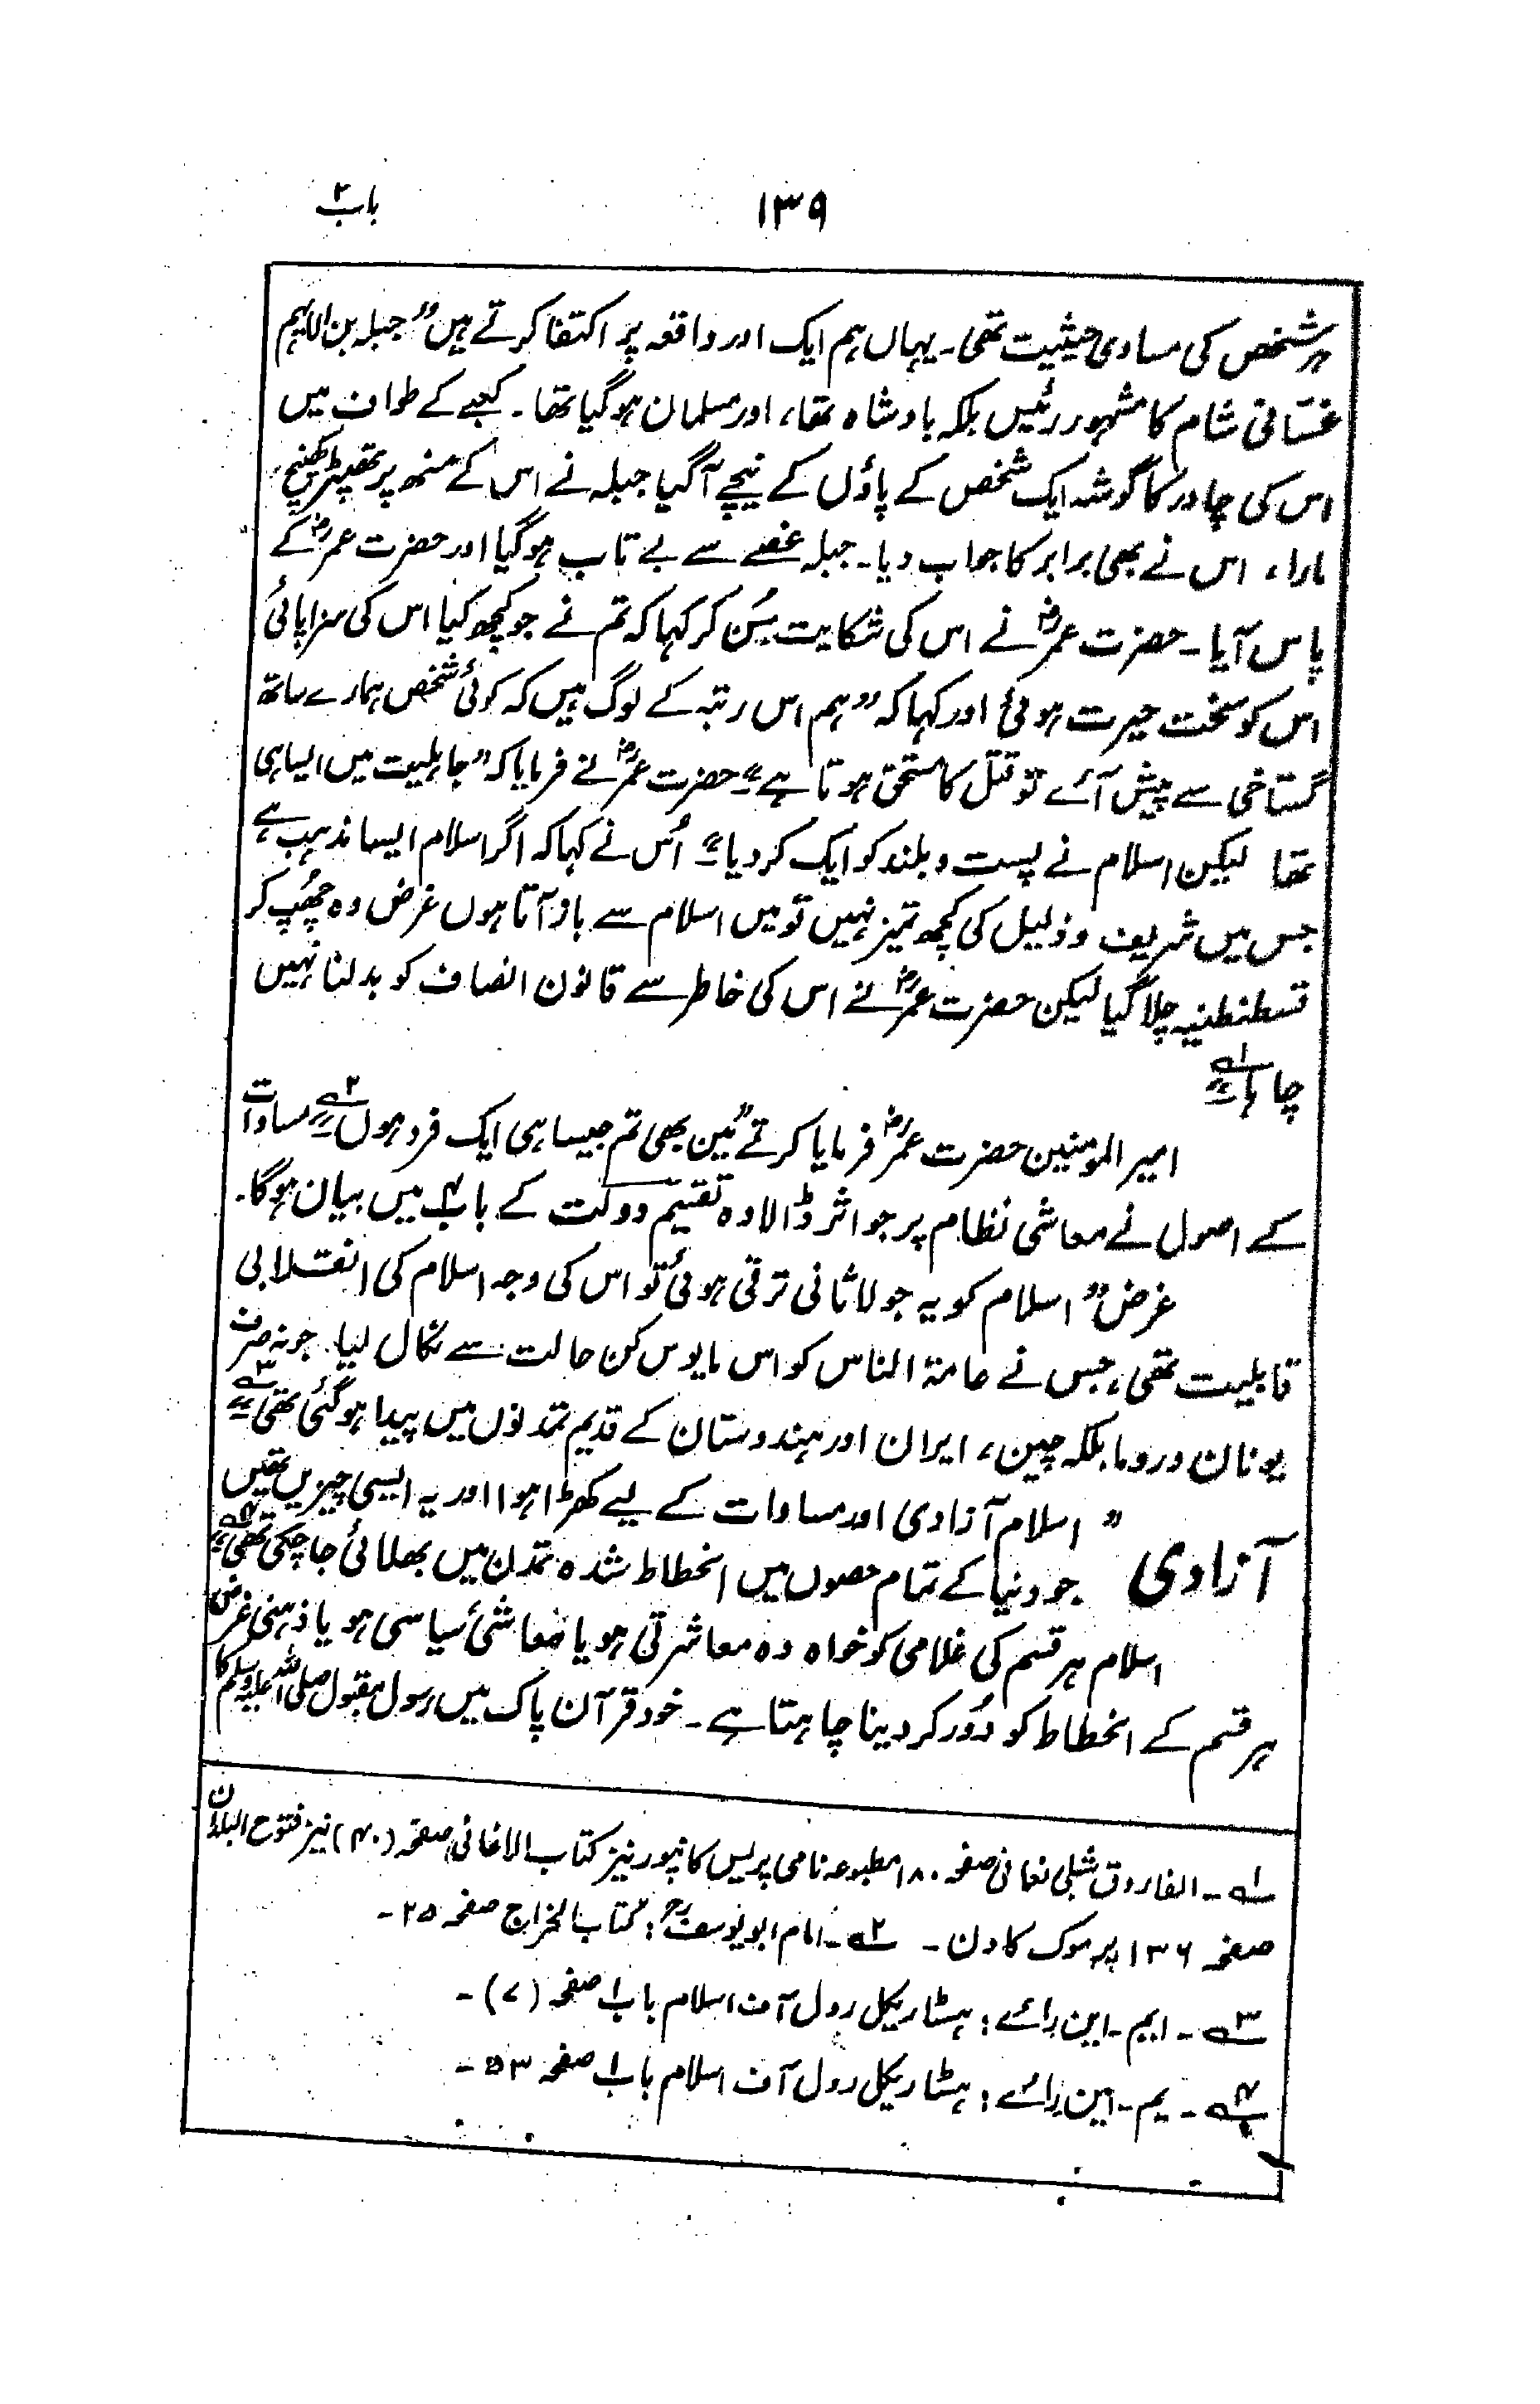 ۱۳۹ باب ۲
ہر شخص کی مساوی حیثیت تھی۔ یہاں ہم ایک اور واقعہ پر اکتفا کرتے ہیں "جبلہ بن الایہم
غسّانی شام کا مشہور رئیس بلکہ بادشاہ تھا، اور مسلمان ہو گیا تھا۔ کعبے کے طواف میں
اس کی چادر کا گوشہ ایک شخص کے پاؤں کے نیچے آگیا جبلہ نے اس کے منھ پر تھپڑ کھینچ
مارا، اس نے بھی برابر کا جواب دیا۔ جبلہ غصے سے بے تاب ہو گیا اور حضرت عمرؓ کے
پاس آیا۔ حضرت عمرؓ نے اس کی شکایت سُن کر کہا کہ تم نے جو کچھ کیا اس کی سزا پائی
اس کو سخت حیرت ہوئی اور کہا کہ "ہم اس رتبہ کے لوگ ہیں کہ کوئی شخص ہمارے ساتھ
گستاخی سے پیش آئے تو قتل کا مستحق ہوتا ہے" حضرت عمرؓ نے فرمایا کہ "جاہلیت میں ایسا ہی
تھا لیکن اسلام نے پست و بلند کو ایک کر دیا" اُس نے کہا کہ اگر اسلام ایسا مذہب ہے
جس میں شریف و ذلیل کی کچھ تمیز نہیں تو میں اسلام سے باز آتا ہوں غرض وہ چھُپ کر
قسطنطنیہ چلا گیا لیکن حضرت عمرؓ نے اس کی خاطر سے قانون انصاف کو بدلنا نہیں
چاہا"۱؎
امیر المومنین حضرت عمرؓ فرمایا کرتے "میں بھی تم جیسا ہی ایک فرد ہوں"۲؎ مساوات
کے اصول نے معاشی نظام پر جو اثر ڈالا وہ تقسیم دولت کے باب ۴ میں بیان ہو گا۔
غرض "اسلام کو یہ جو لاثانی ترقی ہوئی تو اس کی وجہ اسلام کی انقلابی
قابلیت تھی، جس نے عامۃ الناس کو اس مایوس کن حالت سے نکال لیا۔ جو نہ صرف
یونان و روما بلکہ چین، ایران اور ہندوستان کے قدیم تمدنوں میں پیدا ہو گئی تھی"۳؎
آزادی "اسلام آزادی اور مساوات کے لیے کھڑا ہوا اور یہ ایسی چیزیں تھیں
جو دنیا کے تمام حصوں میں انحطاط شدہ تمدن میں بھلائی جا چکی تھی"۴؎
اسلام ہر قسم کی غلامی کو خواہ وہ معاشرتی ہو یا معاشی سیاسی ہو یا ذہنی غرض
ہر قسم کے انحطاط کو دُور کر دینا چاہتا ہے۔ خود قرآن پاک میں رسول مقبول صلی اللہ علیہ وسلم کا
۱؎۔ الفاروق شبلی نعمانی صفحہ ۱۸۰ مطبوعہ نامی پریس کانپور نیز کتاب الاغانی صفحہ (۴۰) نیز فتوح البلدان
صفحہ ۱۳۶ یرموک کا دن۔ ۲؎۔ امام ابو یوسفؒ: کتاب الخراج صفحہ ۲۵۔
۳؎۔ ایم۔ این رائے: ہسٹاریکل رول آف اسلام باب ۱ صفحہ (۷)۔
۴؎۔ یم۔ این رائے: ہسٹاریکل رول آف اسلام باب ۱ صفحہ ۵۳۔